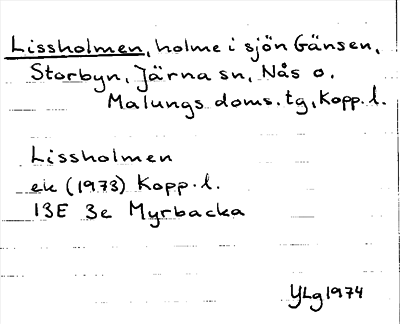 Lissholmen, holme i sjön Gänsen,
Storbyn, Järna sn, Nås o.
Malungs doms.tg, Kopp. l.
Lissholmen
ek (1973) Kopp. l.
13E 3e Myrbacka
YLg 1974